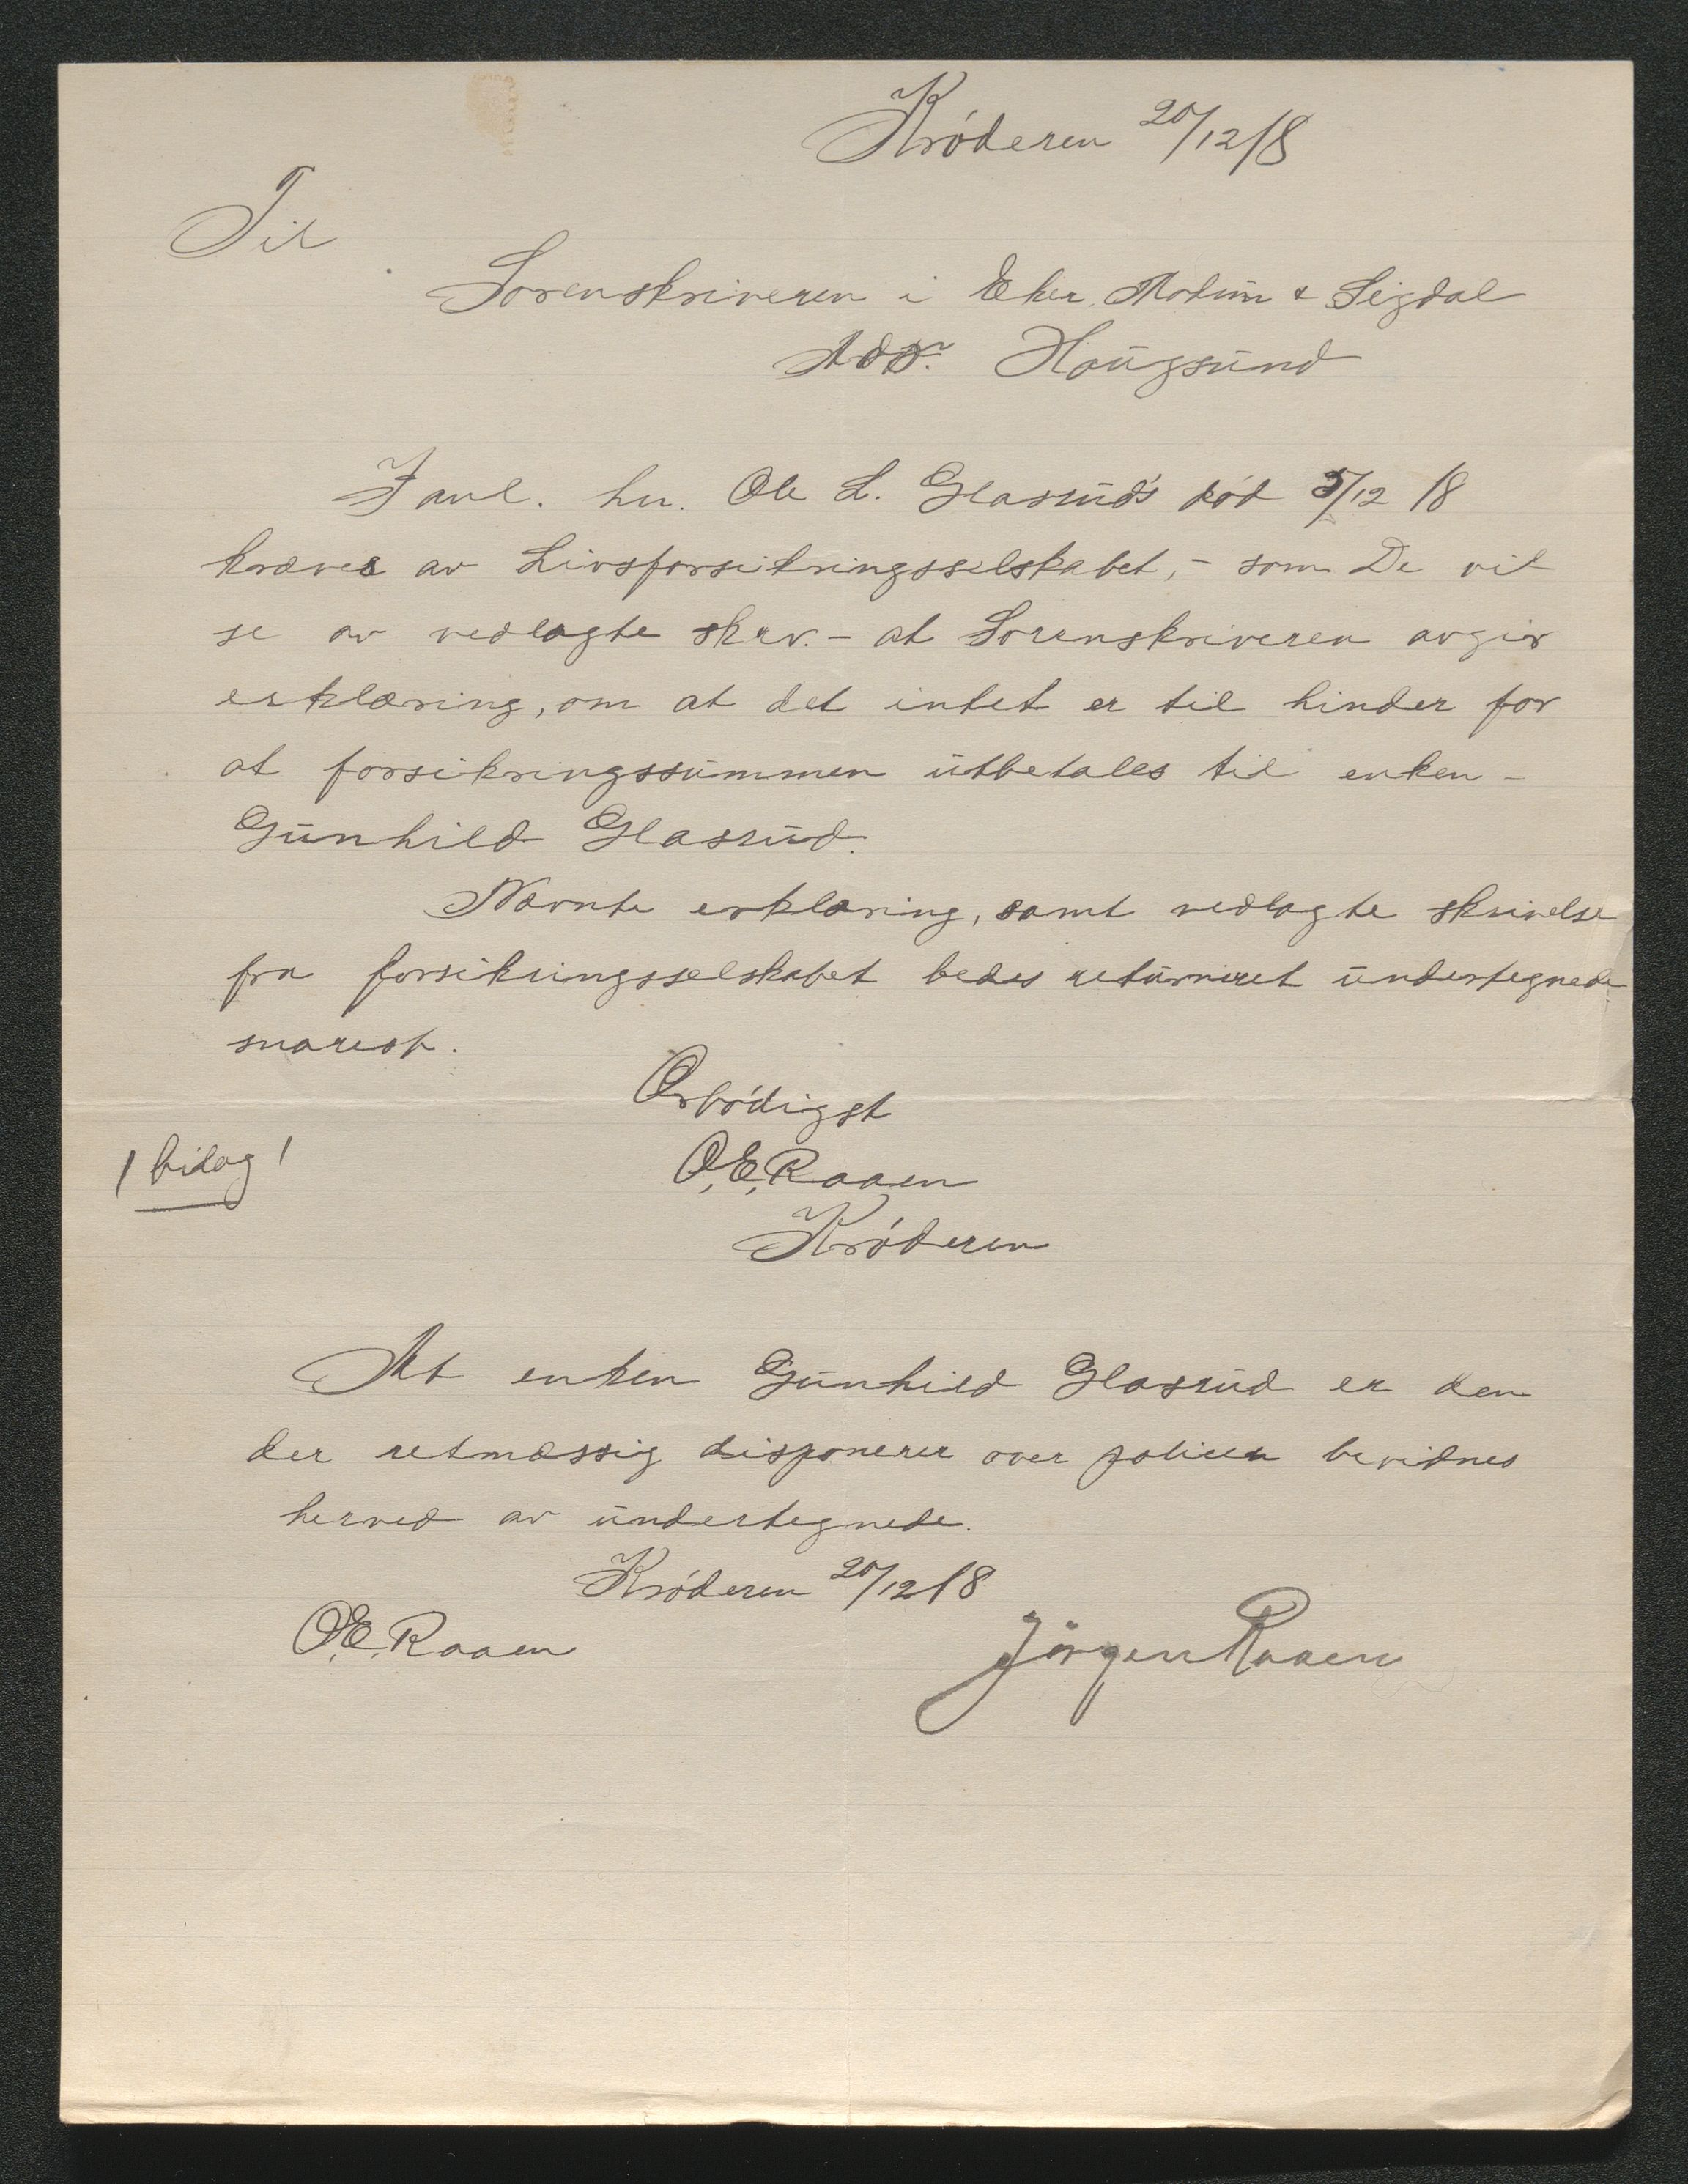 Krøderen 20/12/18
Til
Sorenskriveren i Eker, Modum & Sigdal
Adr. Hougsund
I anl. hr. Ole L. Glasrud's død 5/12 18
kræves av Livsforsikringsselskabet, - som De vil
se av vedlagte skrv. - at Sorenskriveren avgir
erklæring, om at det intet er til hinder for
at forsikringssummen utbetales til enken -
Gunhild Glasrud.
Nævnte erklæring, samt vedlagte skrivelse
fra forsikringsselskabet bedes returneret undertegnede
snarest.
Ærbødigst
O.E. Raaen
Krøderen
1 bilag!
At enken Gunhild Glasrud er den
der retmæssig disponerer over policen bevidnes
herved av undertegnede.
Krøderen 20/12 18
O.E. Raaen
Jörgen Raaen